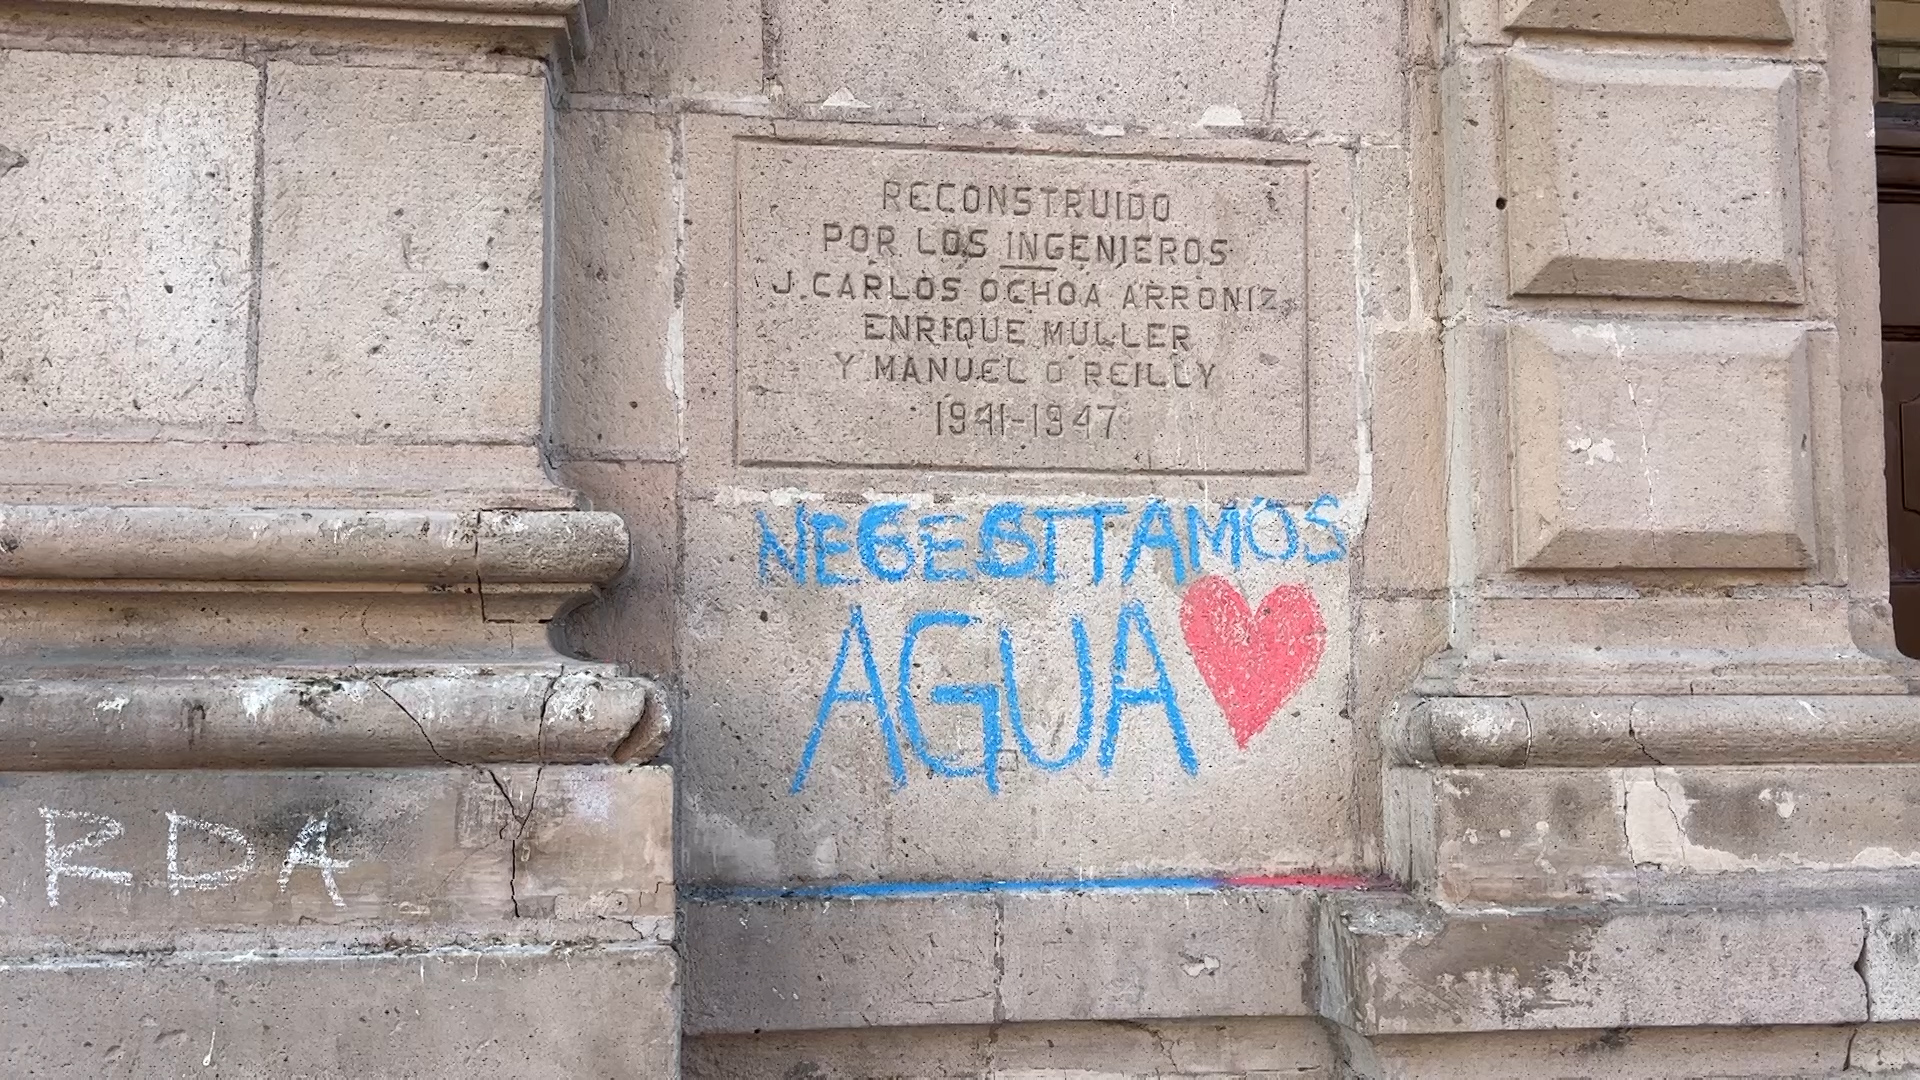 RECONSTRUIDO
POR LOS INGENIEROS
J. CARLOS OCHOA ARRONIZ
ENRIQUE MULLER
Y MANUEL O REILLY
1941-1947
NECESITAMOS
AGUA
RDA